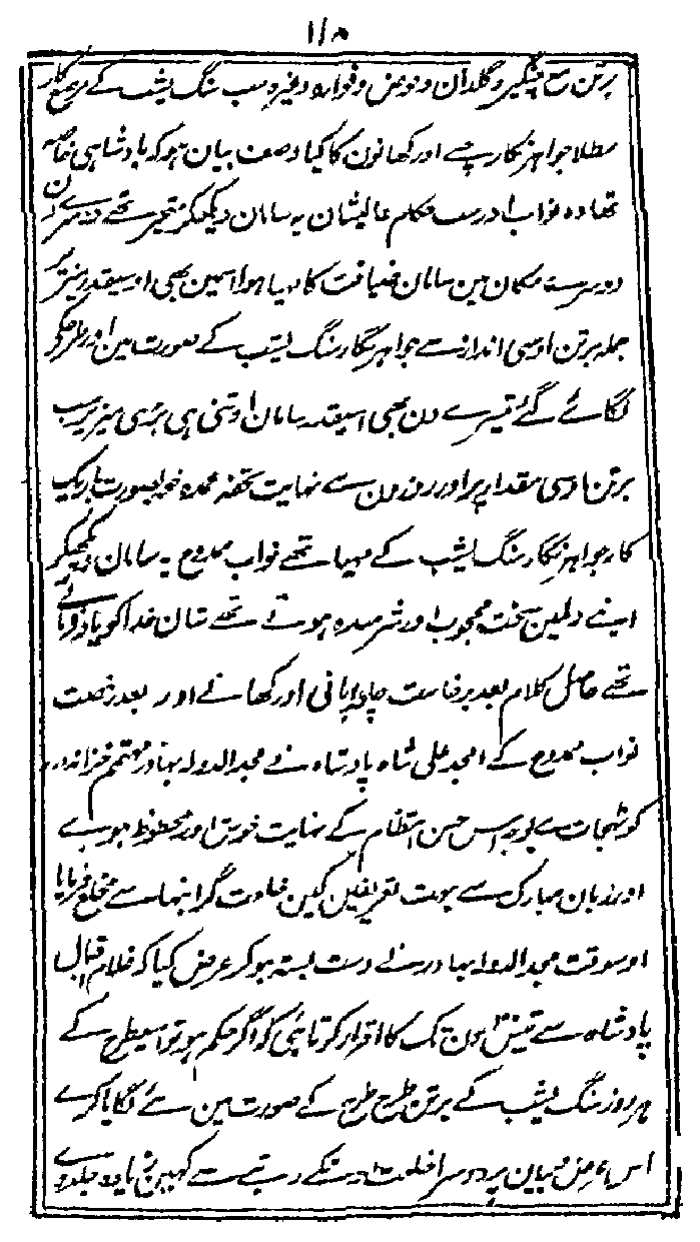 ۱۱۸
برتن مع چنگیر و گلدان و حوض و فوارہ وغیرہ سب سنگ یشب کے مرصع کار
مطلا جواہر نگار تھے اور کھانون کا کیا وصف بیان ہو کہ بادشاہی خاصہ
تھا وہ نواب اور سب حکام عالیشان یہ سامان دیکھکر متحیر تھے دوسرے دن
دوسرے مکان مین سامان ضیافت کا مہیا ہوا اسمین بھی اوسیقدر میز پر
جملہ برتن اوسی انداز سے جواہر نگار سنگ یشب کے صورت مین اور طرحکے
لگائے گئے تیسرے دن بھی اسیقدر سامان اوتنی ہی بڑی میز پر سب
برتن اوسی مقدار پر اور روزون سے نہایت تحفہ عمدہ خوبصورت باریک
کار جواہر نگار سنگ یشب کے مہیا تھے نواب ممدوح یہ سامان دیکھکر
اپنے دلمین سخت محجوب اور شرمندہ ہوتے تھے شان خدا کو یاد فرماتے
تھے حاصل کلام بعد برخاست چاہ پانی اور کھانے اور بعد رخصت
نواب ممدوح کے امجد علی شاہ بادشاہ نے مجدالدولہ بہادر مہتمم خزانہ
کوٹھجات سے بوجہ اس حسن انتظام کے نہایت خوش اور محظوظ ہوے
اور زبان مبارک سے بہت تعریفین کین خلعت گرانبہا سے مخلع فرمایا
اوسوقت مجدالدولہ بہادر نے دست بستہ ہوکر عرض کیا کہ غلام اقبال
پادشاہ سے تیس دن تک کا اقرار کرتا ہی کہ اگر حکم ہو تو اسیطرح کے
ہر روز سنگ یشب کے برتن طرح طرح کے صورت مین نئے لگایا کرے
اس عرض و بیان پر دوسرا خلعت اونکے رتبے سے کہین زیادہ جلدو